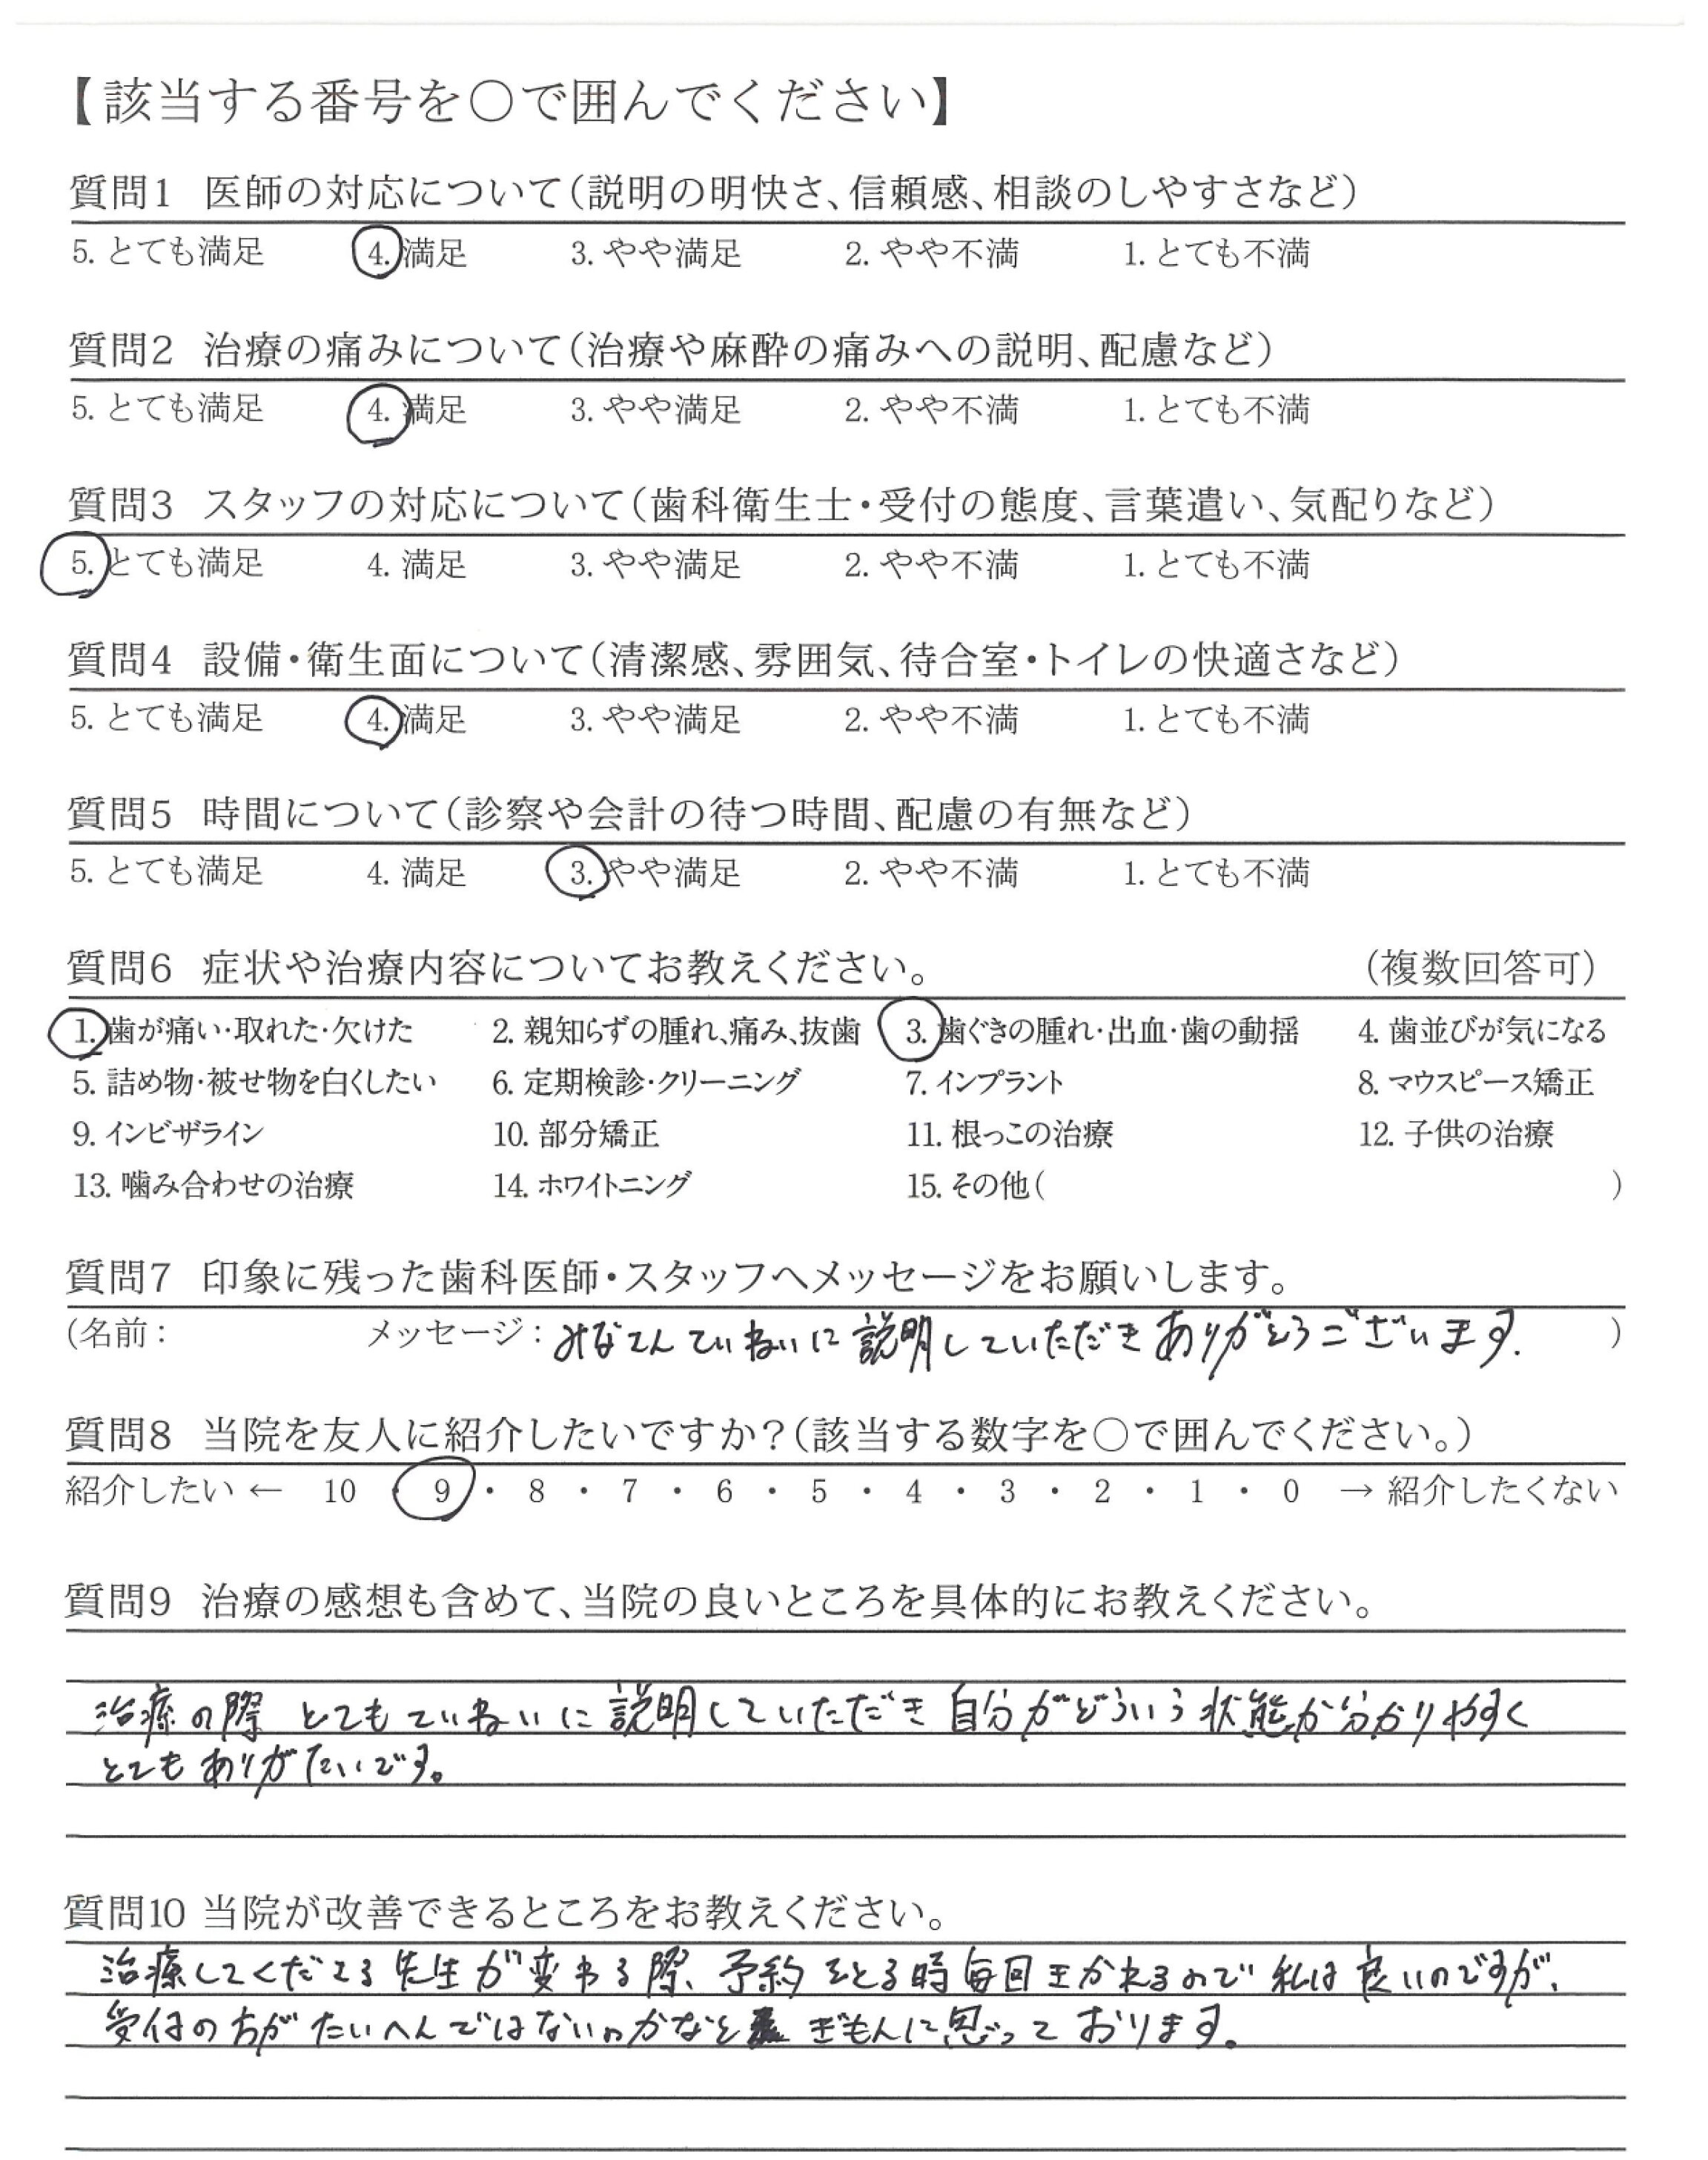 【該当する番号を〇で囲んでください】
質問1 医師の対応について(説明の明快さ、信頼感、相談のしやすさなど)
5. とても満足 4. 満足 3. やや満足 2. やや不満 1. とても不満
質問2 治療の痛みについて(治療や麻酔の痛みへの説明、配慮など)
5. とても満足 4. 満足 3. やや満足 2. やや不満 1. とても不満
質問3 スタッフの対応について(歯科衛生士・受付の態度、言葉遣い、気配りなど)
5. とても満足 4. 満足 3. やや満足 2. やや不満 1. とても不満
質問4 設備・衛生面について(清潔感、雰囲気、待合室・トイレの快適さなど)
5. とても満足 4. 満足 3. やや満足 2. やや不満 1. とても不満
質問5 時間について(診察や会計の待つ時間、配慮の有無など)
5. とても満足 4. 満足 3. やや満足 2. やや不満 1. とても不満
質問6 症状や治療内容についてお教えください。 (複数回答可)
1. 歯が痛い・取れた・欠けた 2. 親知らずの腫れ、痛み、抜歯 3. 歯ぐきの腫れ・出血・歯の動揺 4. 歯並びが気になる
5. 詰め物・被せ物を白くしたい 6. 定期検診・クリーニング 7. インプラント 8. マウスピース矯正
9. インビザライン 10. 部分矯正 11. 根っこの治療 12. 子供の治療
13. 噛み合わせの治療 14. ホワイトニング 15. その他( )
質問7 印象に残った歯科医師・スタッフへメッセージをお願いします。
(名前: メッセージ: みなさんていねいに説明していただきありがとうございます. )
質問8 当院を友人に紹介したいですか?(該当する数字を〇で囲んでください。)
紹介したい ← 10 ・ 9 ・ 8 ・ 7 ・ 6 ・ 5 ・ 4 ・ 3 ・ 2 ・ 1 ・ 0 → 紹介したくない
質問9 治療の感想も含めて、当院の良いところを具体的にお教えください。
治療の際 とてもていねいに説明していただき自分がどういう状態か分かりやすく
とてもありがたいです。
質問10 当院が改善できるところをお教えください。
治療してくださる先生が変わる際、予約をとる時毎回きかれるので私は良いのですが、
受付の方がたいへんではないのかなと ぎもんに思っております。